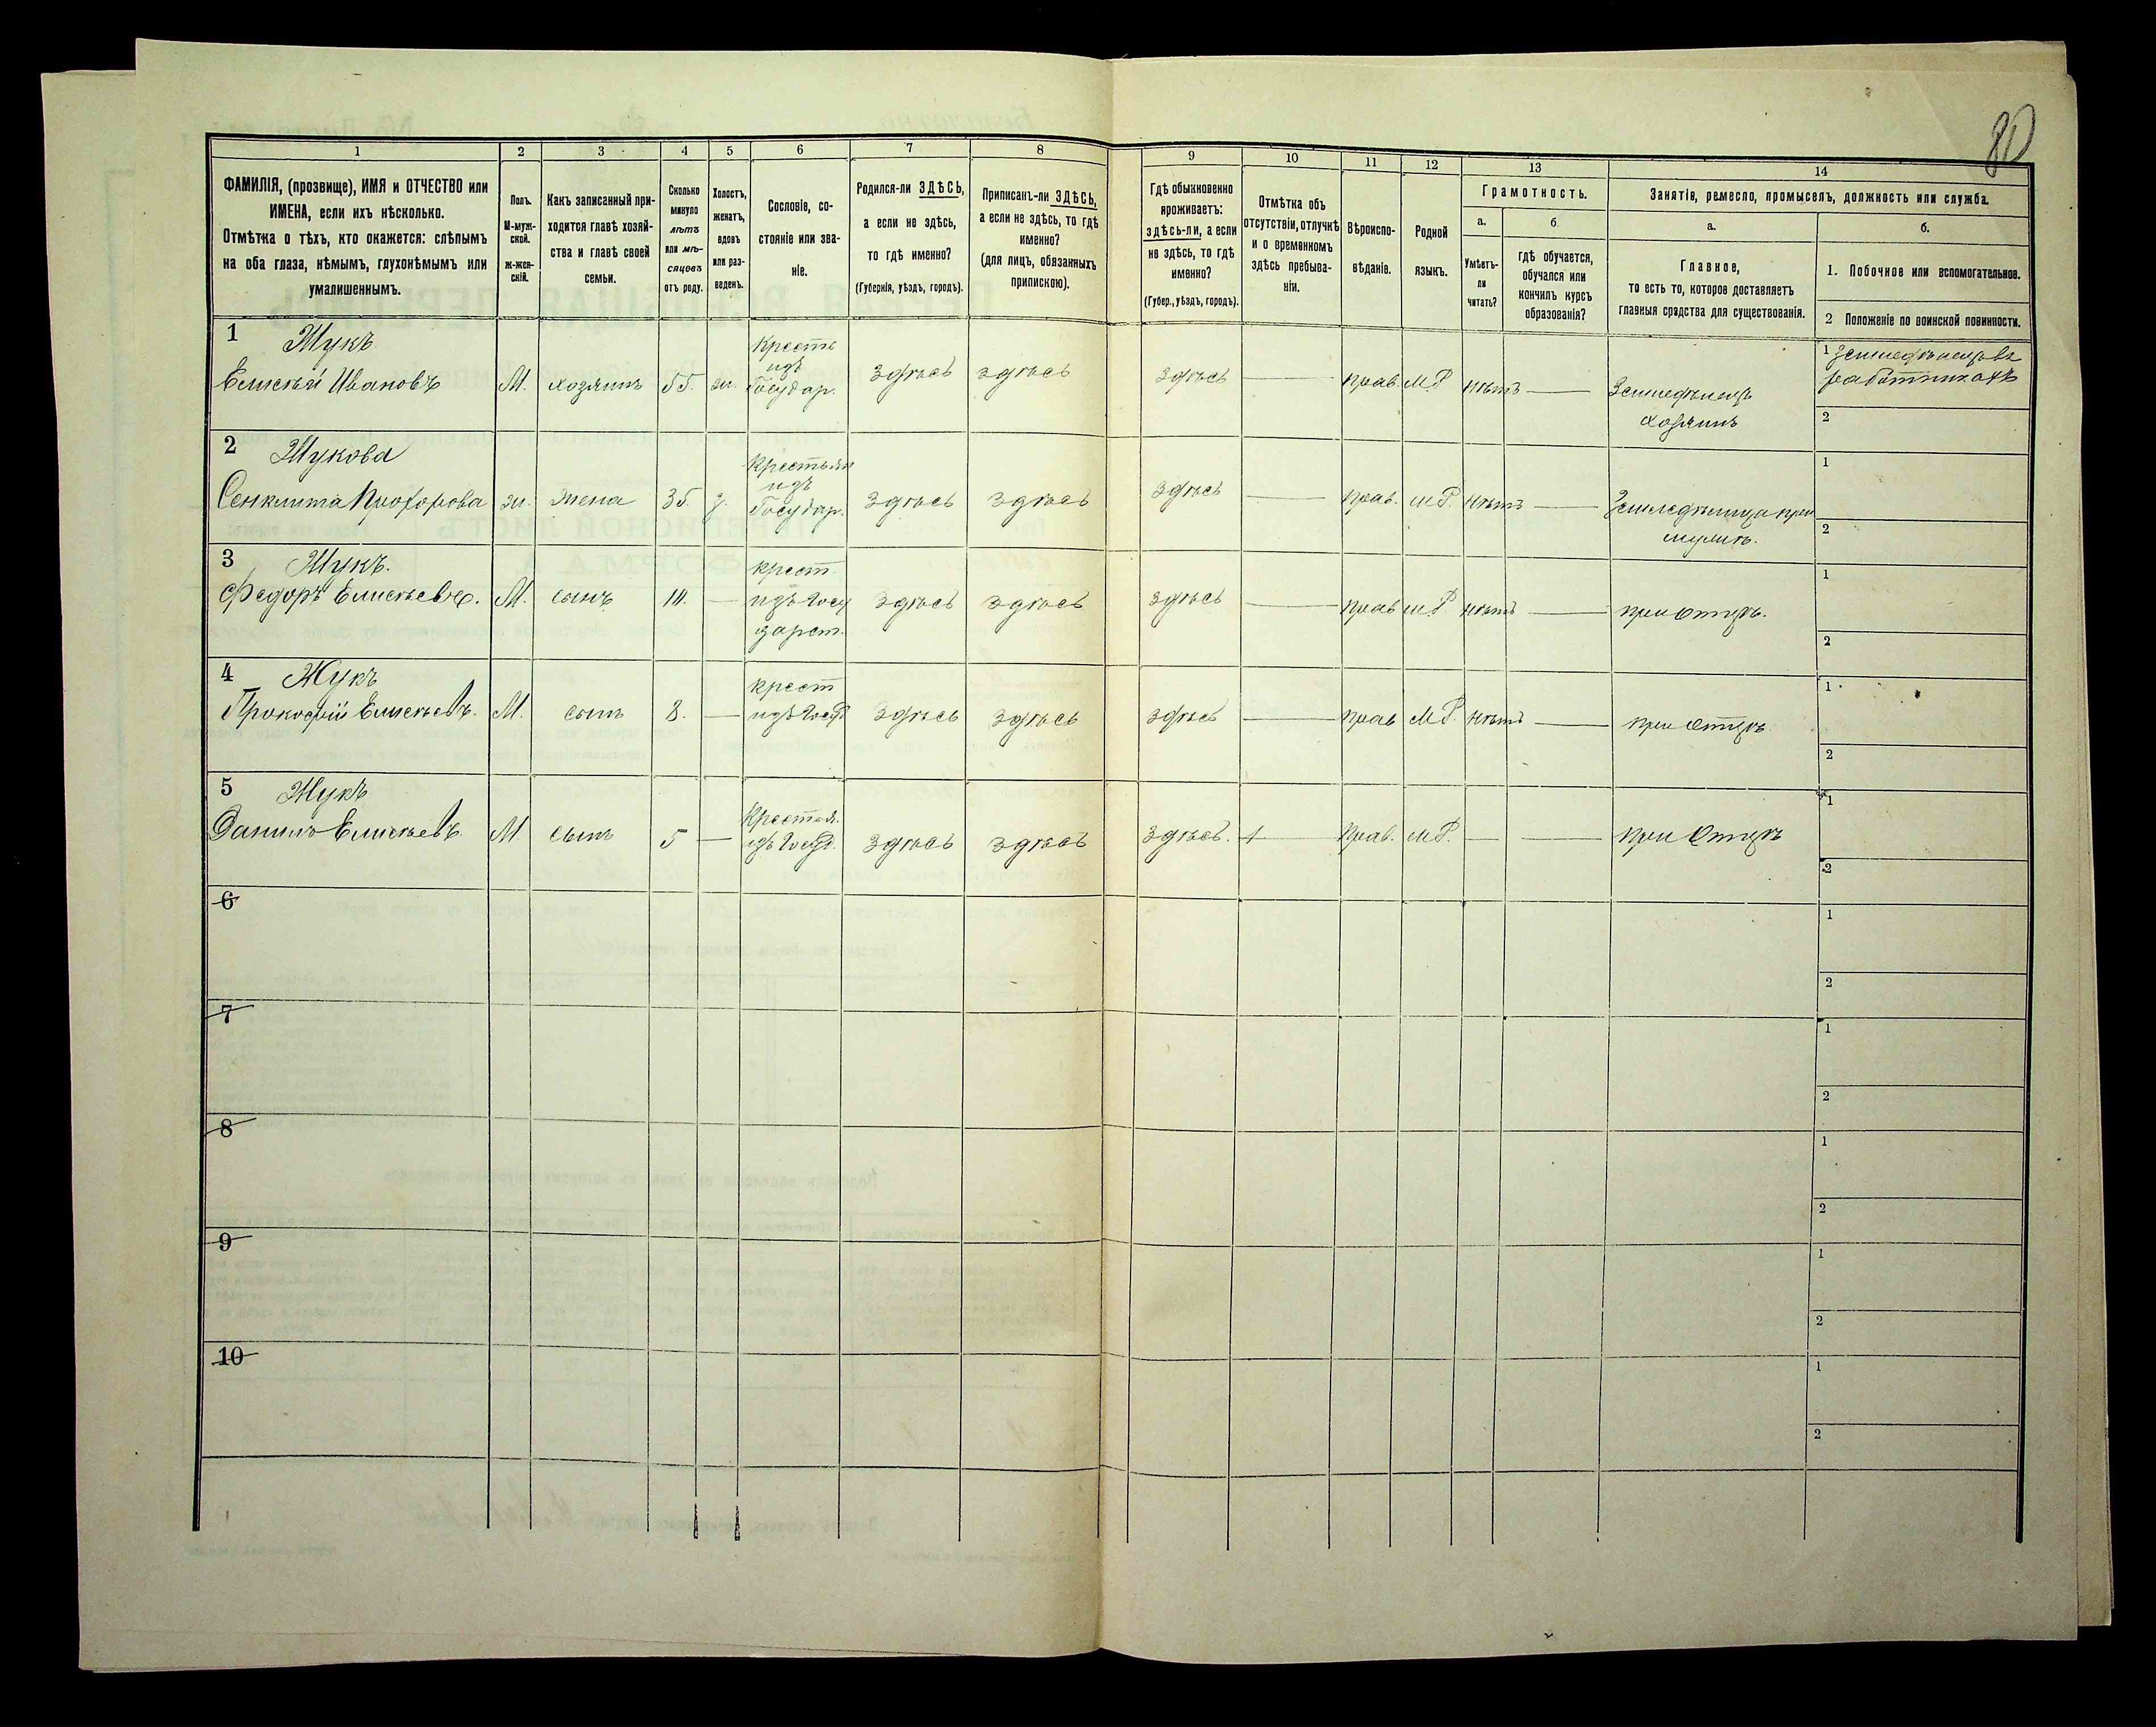 80
1 2 3 4 5 6 7 8 9 10 11 12 13 14
ФАМИЛІЯ, (прозвище), ИМЯ и ОТЧЕСТВО или
ИМЕНА, если ихъ нѣсколько.
Отмѣтка о тѣхъ, кто окажется: слѣпымъ
на оба глаза, нѣмымъ, глухонѣмымъ или
умалишеннымъ.
Полъ.
М-муж-
ской.
ж-жен-
скій.
Какъ записанный при-
ходится главѣ хозяй-
ства и главѣ своей
семьи.
Сколько
минуло
лѣтъ
или мѣ-
сяцовъ
отъ роду.
Холостъ,
женатъ,
вдовъ
или раз-
веденъ.
Сословіе, со-
стояніе или зва-
ніе.
Родился-ли ЗДѢСЬ,
а если не здѣсь,
то гдѣ именно?
(Губернія, уѣздъ, городъ).
Приписанъ-ли ЗДѢСЬ,
а если не здѣсь, то гдѣ
именно?
(для лицъ, обязанныхъ
припискою).
Гдѣ обыкновенно
проживаетъ:
здѣсь-ли, а если
не здѣсь, то гдѣ
именно?
(Губер., уѣздъ, городъ).
Отмѣтка объ
отсутствіи, отлучкѣ
и о временномъ
здѣсь пребыва-
ніи.
Вѣроиспо-
вѣданіе.
Родной
языкъ.
Грамотность.
а.
Умѣетъ-
ли
читать?
б.
гдѣ обучается,
обучался или
кончилъ курсъ
образованія?
Занятіе, ремесло, промыселъ, должность или служба.
а.
Главное,
то есть то, которое доставляетъ
главныя средства для существованія.
б.
1. Побочное или вспомогательное.
2 Положеніе по воинской повинности.
1 Жукъ
Елисѣй Ивановъ М. хозяинъ 55. ж.
Кресть
изъ
Государ.
здѣсь здѣсь здѣсь — прав. М.Р. нѣтъ —
Земледѣлецъ
хозяинъ
1 Земледѣлецъ въ
работникахъ
2
2 Жукова
Сенклита Прохорова ж. жена 35. з.
Крестьян
изъ
Государ.
здѣсь здѣсь здѣсь — прав. М.Р. нѣтъ —
Земледѣлица при
мужѣ.
1
2
3 Жукъ.
Федоръ Елисѣевъ. М. сынъ 14. —
крест.
изъ Госу
дарст.
здѣсь здѣсь здѣсь — прав М.Р. нѣтъ — при отцѣ.
1
2
4 Жукъ
Прокофій Елисѣевъ. М. сынъ 8. —
крест
изъ Госуд
здѣсь здѣсь здѣсь — прав М.Р. нѣтъ — при отцѣ
1
2
5 Жукъ
Данило Елисѣевъ. М. сынъ 5 —
Крестья.
изъ Госуд.
здѣсь здѣсь здѣсь. — Прав. М.Р. — — при Отцѣ
1
2
6
1
2
7
1
2
8
1
2
9
1
2
10
1
2